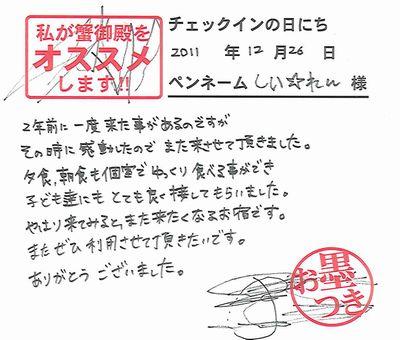 私が蟹御殿を
オススメ
します!!
チェックインの日にち
2011 年 12 月 26 日
ペンネーム しい☆れん 様
2年前に一度来た事があるのですが
その時に感動したので また来させて頂きました。
夕食、朝食も個室で ゆっくり食べる事ができ
子ども達にも とても良く接してもらいました。
やはり来てみると、また来たくなるお宿です。
またぜひ利用させて頂きたいです。
ありがとう ございました。
お墨
つき